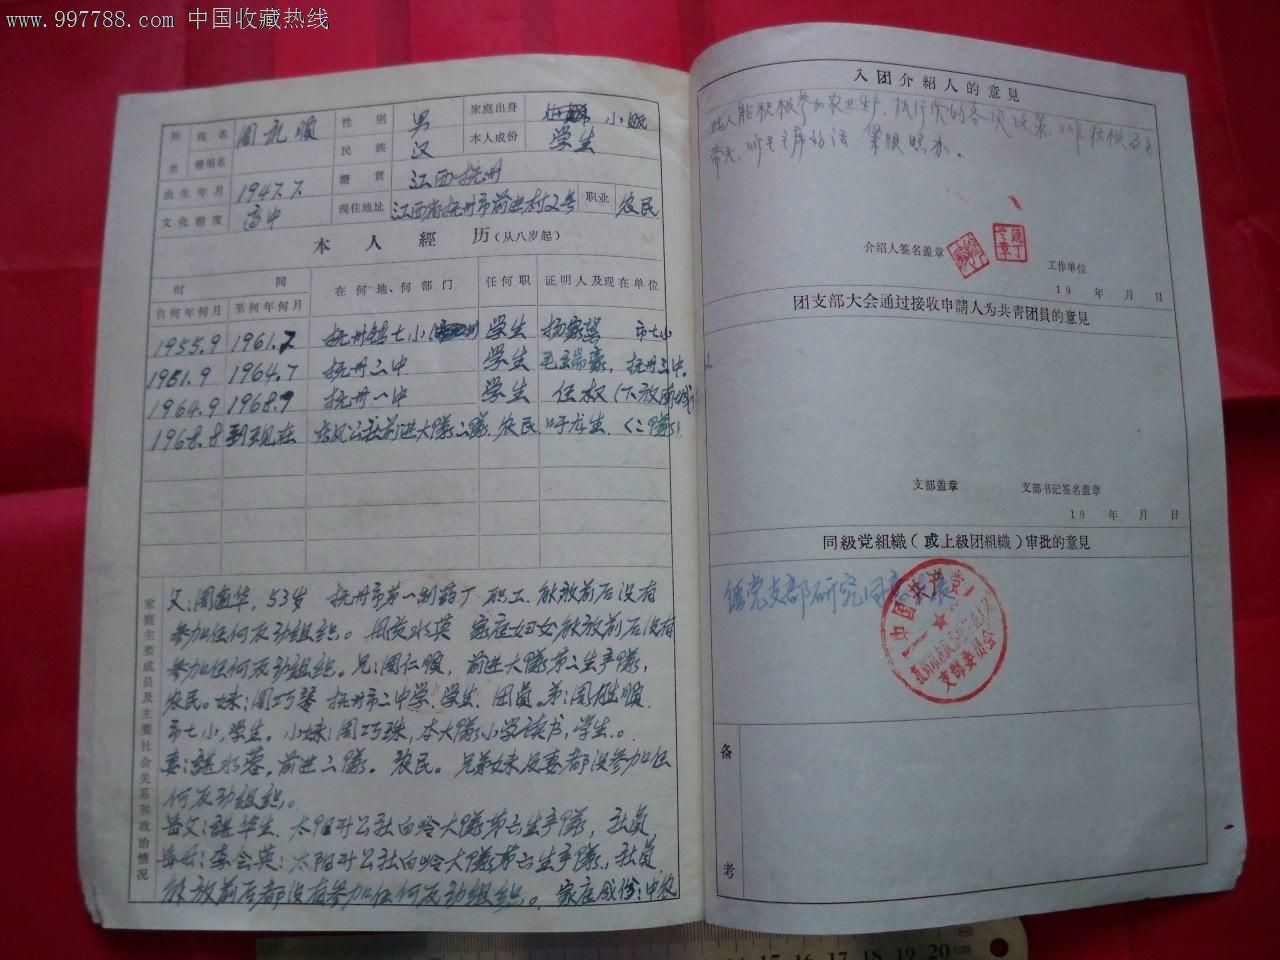 www.997788.com 中国收藏热线
姓名 现名 周礼顺 性别 男 家庭出身 小贩
曾用名 民族 汉 本人成份 学生
出生年月 1947.7. 籍贯 江西抚州
文化程度 高中 现住地址 江西省抚州市前进村2号 职业 农民
本人經历(从八岁起)
时間 在何地、何部门 任何职 证明人及现在单位
自何年何月 至何年何月
1955.9 1961.7 抚州镇七小 学生 杨家 市七小
1951.9 1964.7 抚州二中 学生 抚州二中.
1964.9 1968.9 抚州一中 学生 任权(下放南城)
1968.8 到现在 公社前进大隊二隊. 农民. 叶龙生.(二隊).
家庭主要成员及主要社会关系和政治情况
父:周 华,53岁 抚州市第一制药厂.职工.解放前后没有
参加任何反动组织。母 水英 家庭妇女解放前后没有
参加任何反动组织。兄:周仁顺,前进大隊第二生产隊,
农民。妹:周巧琴 抚州市二中学.学生.团员.弟:周 顺.
市七小,学生。小妹:周巧珠,本大隊小学读书,学生。
妻: 水蓉,前进二隊。农民。兄弟妹及妻都没参加任
何反动组织。
岳父: 华生.太阳升公社白岭大隊第六生产隊,社员.
岳母:李会英:太阳升公社白岭大隊第六生产隊,社员.
解放前后都没有参加任何反动组织。家庭成份:中农
入团介紹人的意見
此人能积极参加农业生产,执行党的各项政策,工作积极
带头,听毛主席的话 照办。
介紹人签名盖章 工作单位
19 年 月 日
团支部大会通过接收申請人为共青团員的意見
支部盖章 支部书记签名盖章
19 年 月 日
同級党組織(或上級团組織)审批的意見
经党支部研究同意
中国共产党
支部委员会
备
考
17 18 19 20 cm